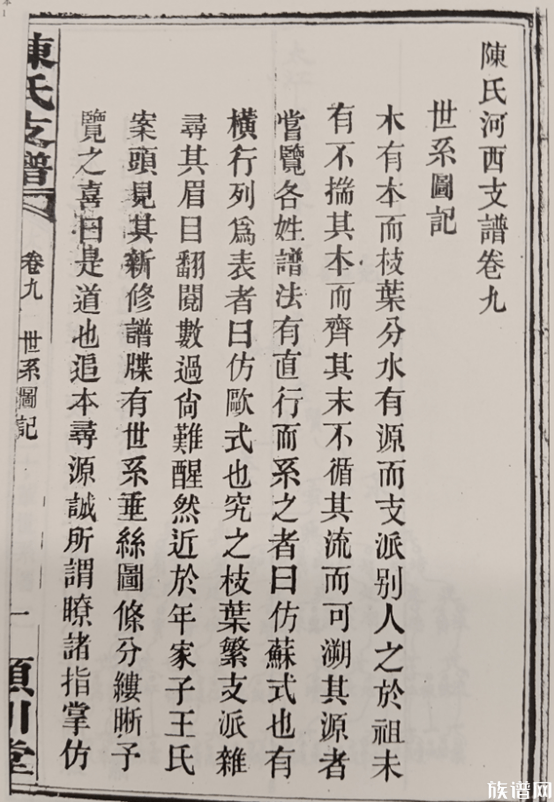 陳氏河西支譜卷九
世系圖記
木有本而枝葉分水有源而支派别人之於祖未
有不揣其本而齊其末不循其流而可溯其源者
嘗覽各姓譜法有直行而系之者曰仿蘇式也有
橫行列爲表者曰仿歐式也究之枝葉繁支派雜
尋其眉目翻閱數過尚難醒然近於年家子王氏
案頭見其新修譜牒有世系垂絲圖條分縷晰子
覽之喜曰是道也追本尋源誠所謂瞭諸指掌仿
陳氏支譜
卷九
世系圖記
一
潁川堂
族谱网